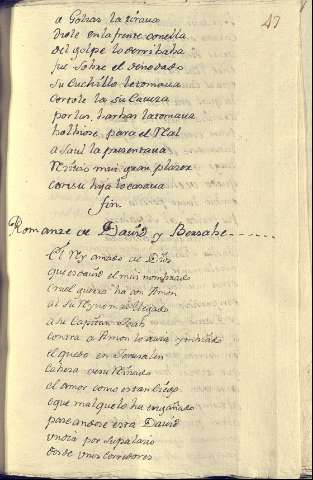 47
a Golias la tiraua
diole en la frente con ella
del golpe lo derribaba
fue sobre el denodado
su cuchillo le tomaua
cortole la su caueza
por las barbas la tomaua
boluiose para el Real
a Saul la presentaua
Reciuio mui gran plazer
con su hija lo casaua
fin
Romanze de Dauid y Bersabe
El Rey amado de Dios
ques Dauid el mui nombrado
cruel guerra ha con Amon
al su Reyno
a su Capitan Joab
contra Amon lo auia ymbiado
el quedo en Jerusalen
cabeza de su Reinado
el amor como es tan ciego
o que mal que lo ha engañado
paseandose esta Dauid
un dia por su palacio
donde unos corredores